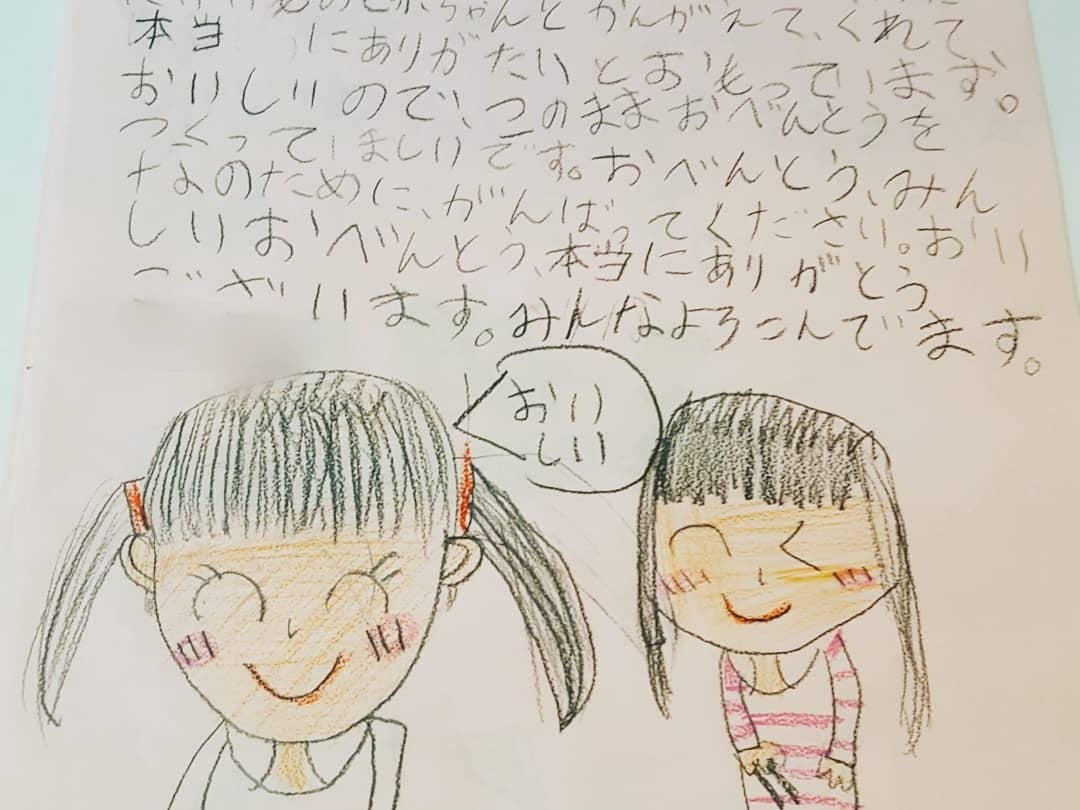 ちゃんとかんがえて、くれて、
本当 にありがたいとおもっています。
おいしいので、このままおべんとうを
つくってほしいです。おべんとう、みん
なのために、がんばってください。おい
しいおべんとう、本当にありがとう
ございます。みんなよろこんでいます。
おい
しい